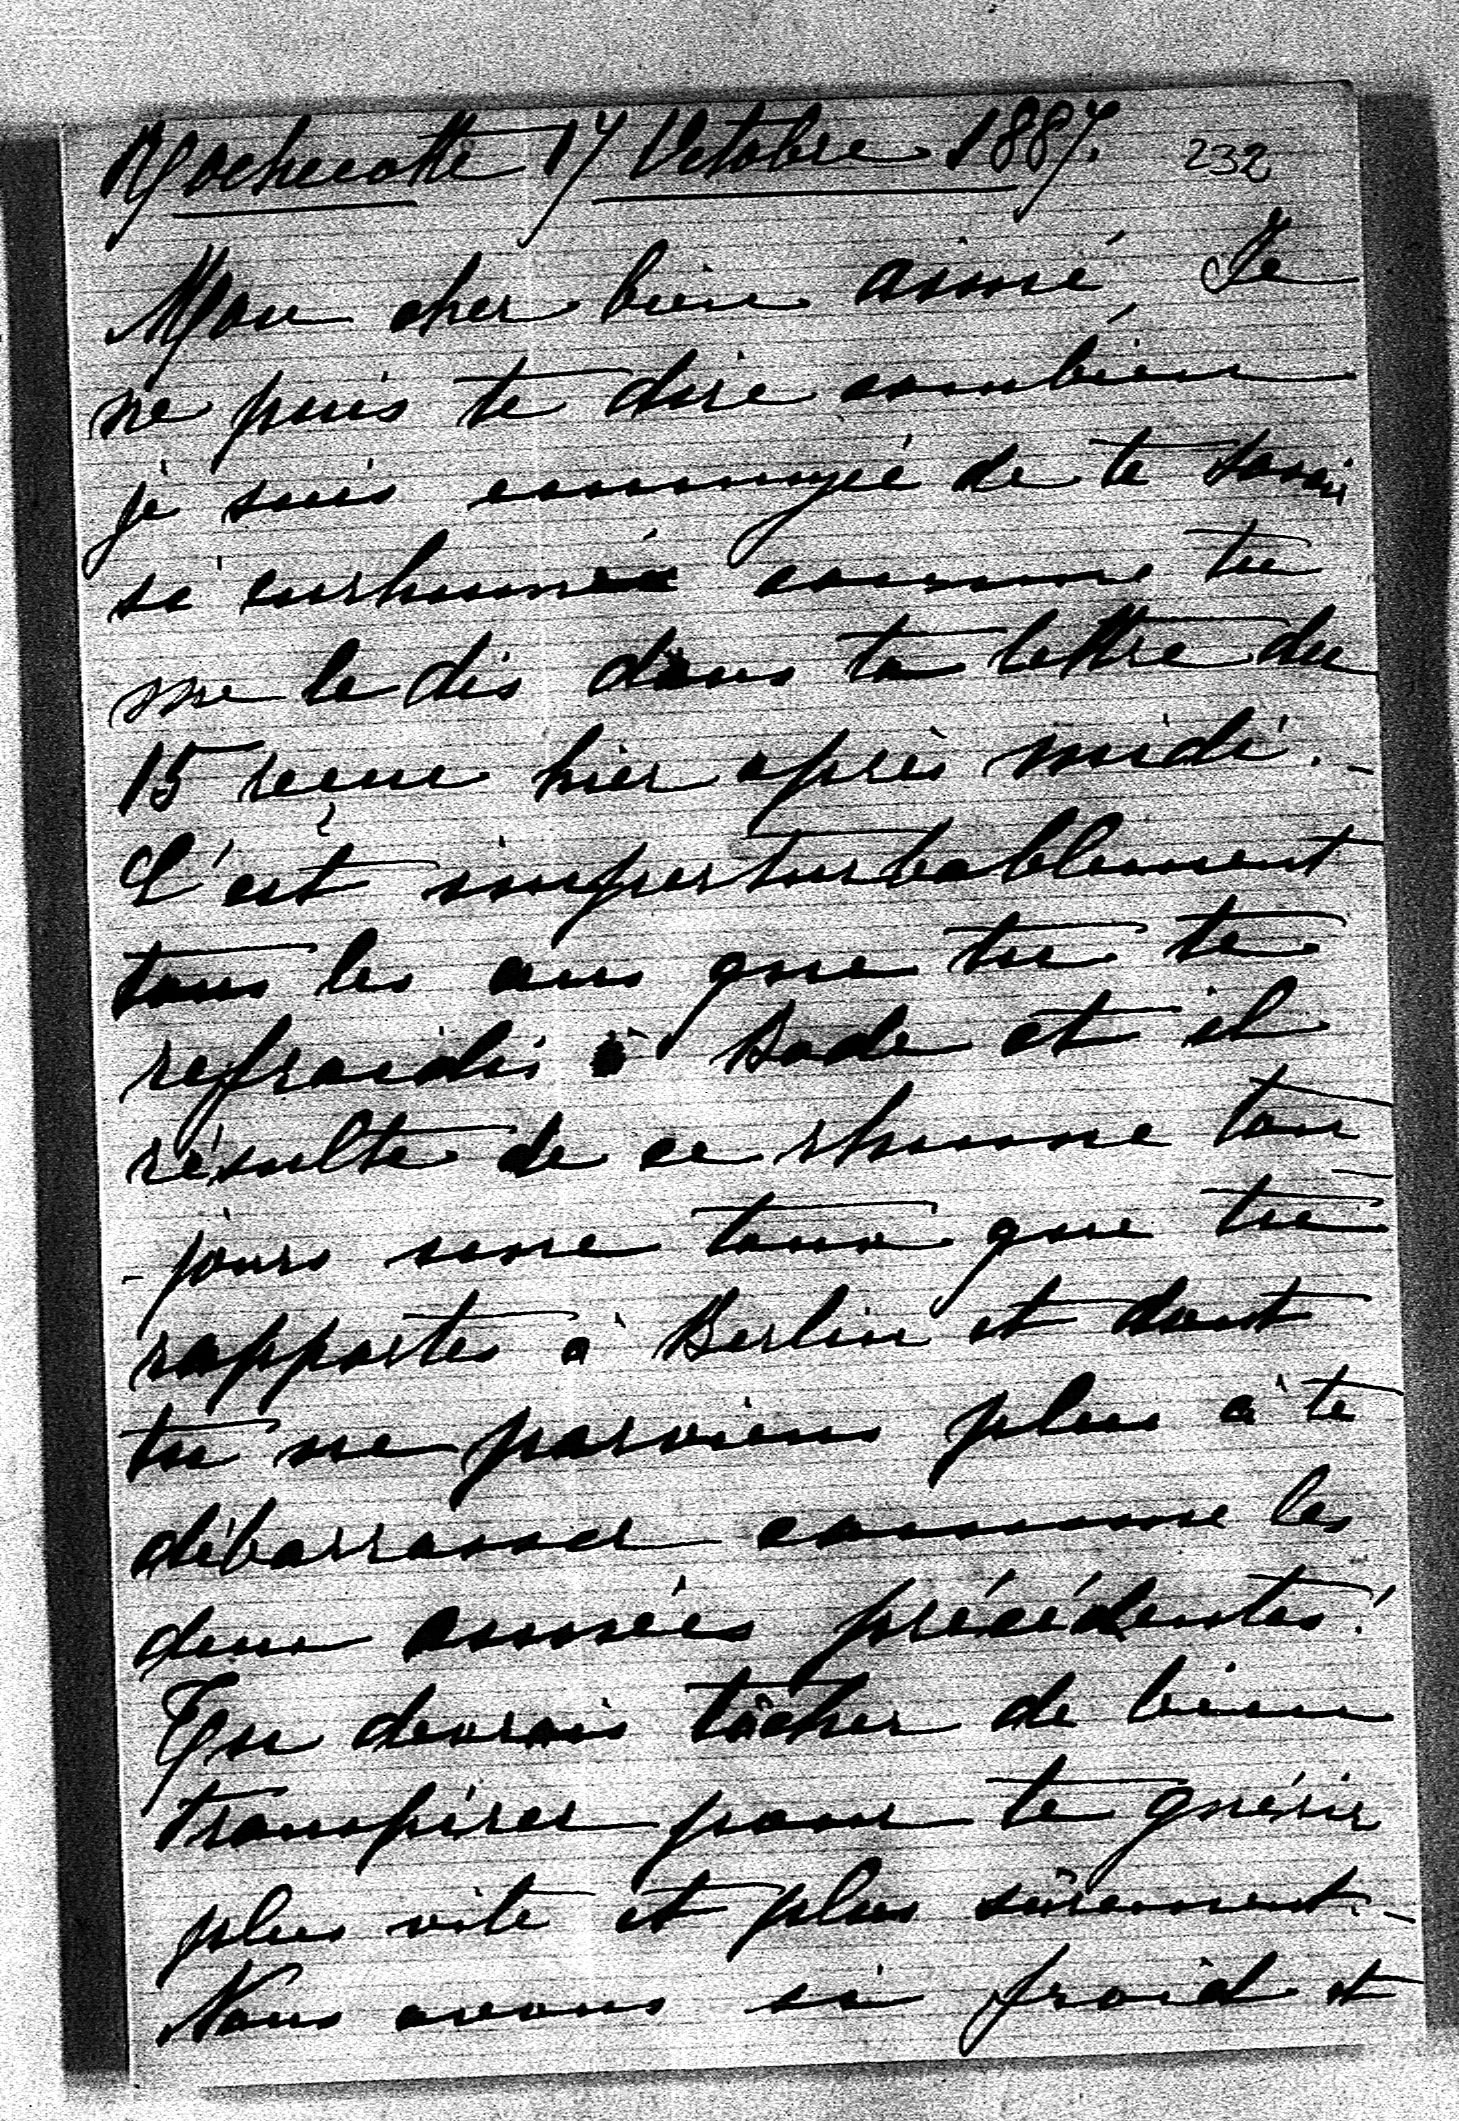 Rochecotte 17 Octobre 1887. 232
Mon cher bien aimé, Je
ne puis te dire combien
je suis ennuyée de te savoir
si enrhumé comme tu
me le dis dans ta lettre du
15 reçue hier après midi. -
C'est imperturbablement
tous les ans que tu te
refroidis à Bade et il
résulte de ce rhume tou
- jours une toux que tu
rapportes à Berlin et dont
tu ne parviens plus à te
débarrasser comme les
deux années précédentes!
Tu devrais tâcher de bien
transpirer pour te guérir
plus vite et plus sûrement. -
Nous avons si froid et